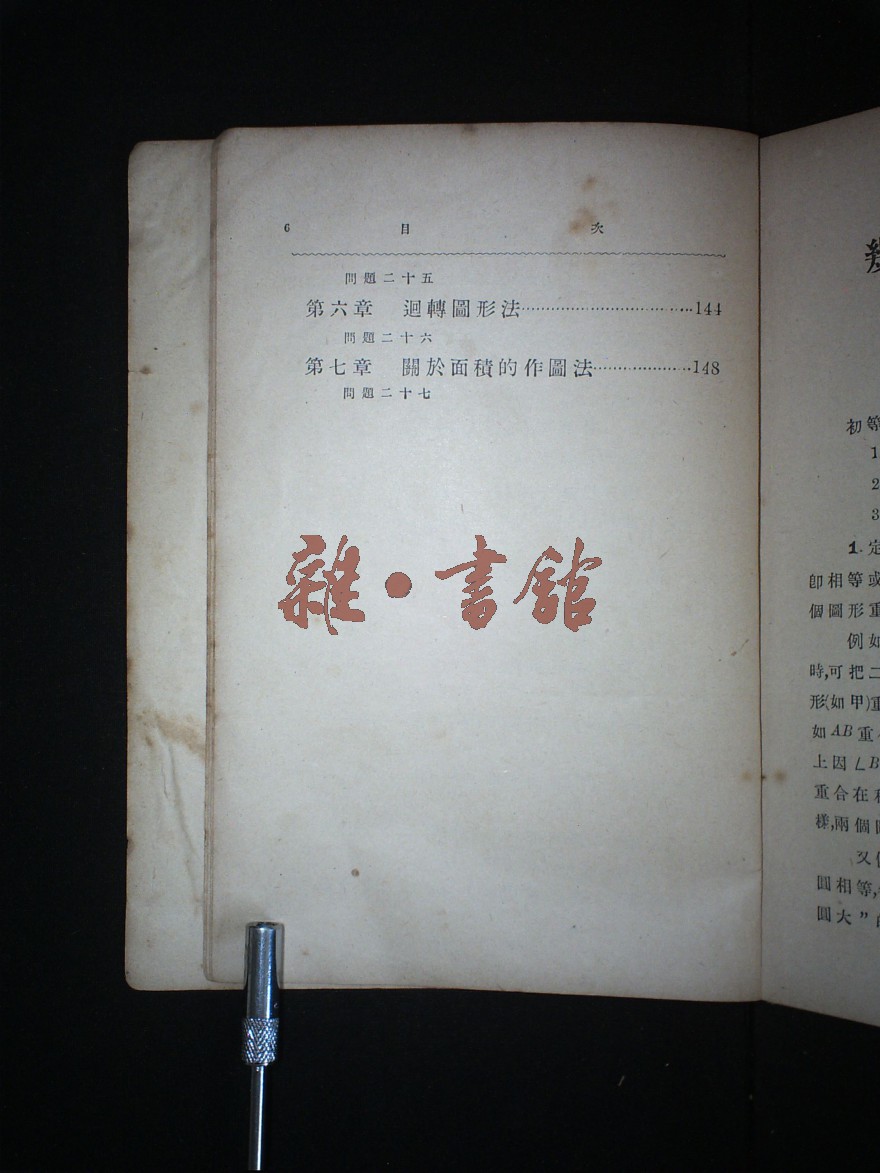 6 目 次
問題二十五
第六章 迴轉圖形法……………………………144
問題二十六
第七章 關於面積的作圖法…………………148
問題二十七
雜·書館
初等
1
2
3
1. 定
卽相等或
個圖形重
例如
時,可把二
形(如甲)重
如AB重
上因∠B
重合在
樣,兩個
又
圓相等,
圓大”